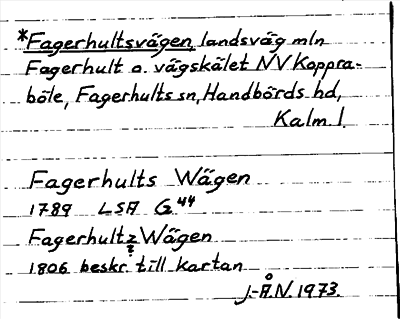 *Fagerhultsvägen, landsväg mln
Fagerhult o. vägskälet NV Koppra-
böle, Fagerhults sn, Handbörds hd,
Kalm. l.
Fagerhults Wägen
1789 LSA G 44
Fagerhultz Wägen
?
1806 beskr. till kartan
J.-Å.N. 1973.